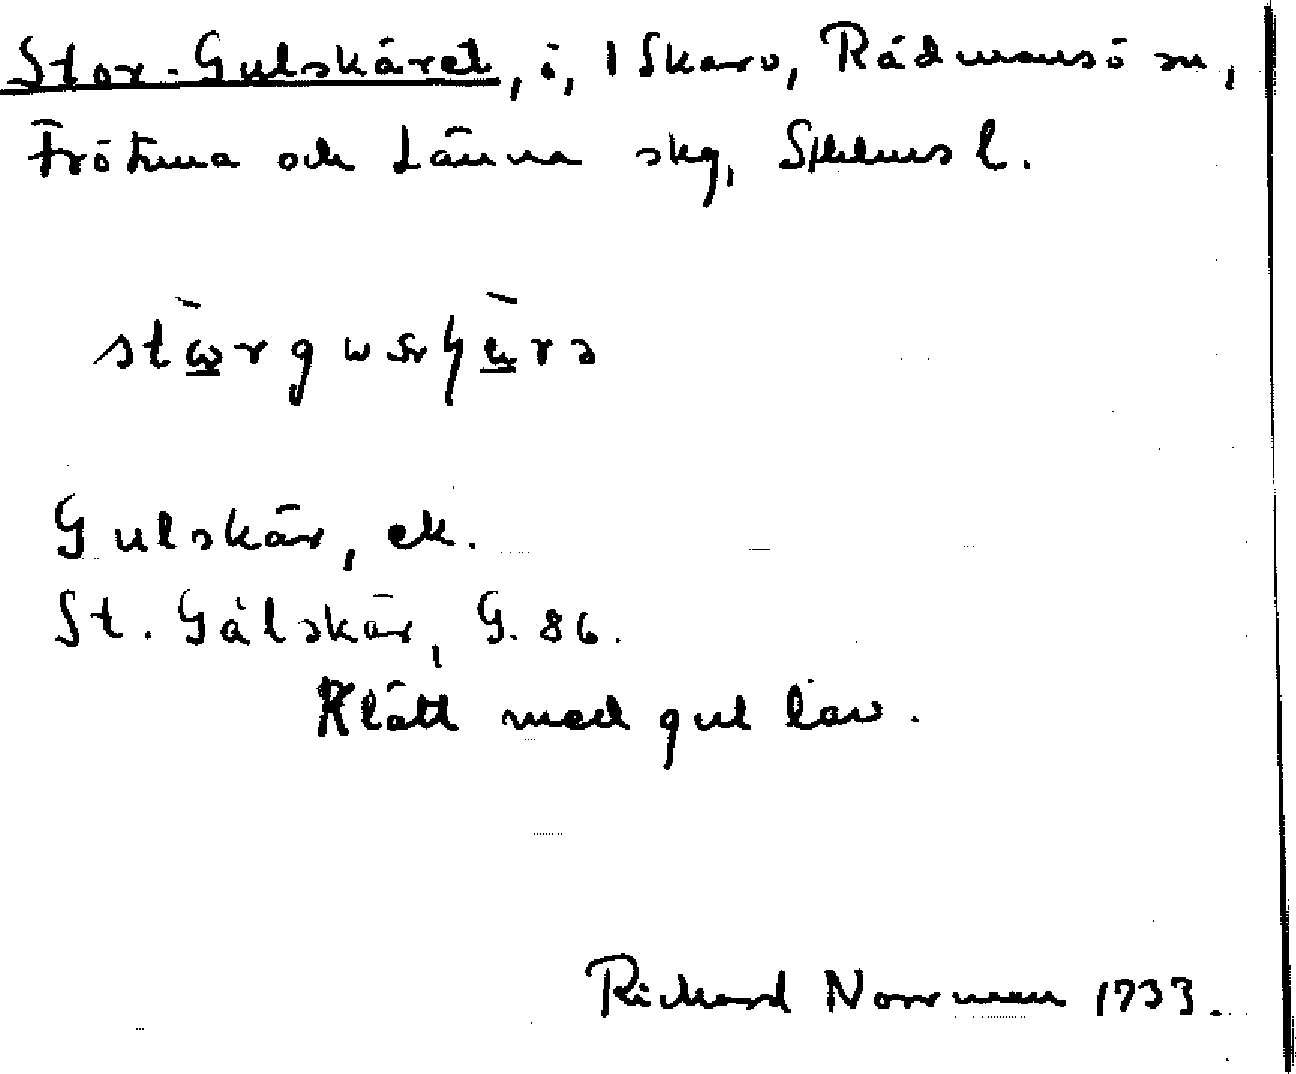 Stor-Gulskäret, ö, 1 Skarv, Rådmansö sn,
Frötuna och Länna skg, Sthlms l.
Gulskär, ek.
St. Gålskär, G. 86.
Klätt med gul lav.
Rickard Norrman 1933.